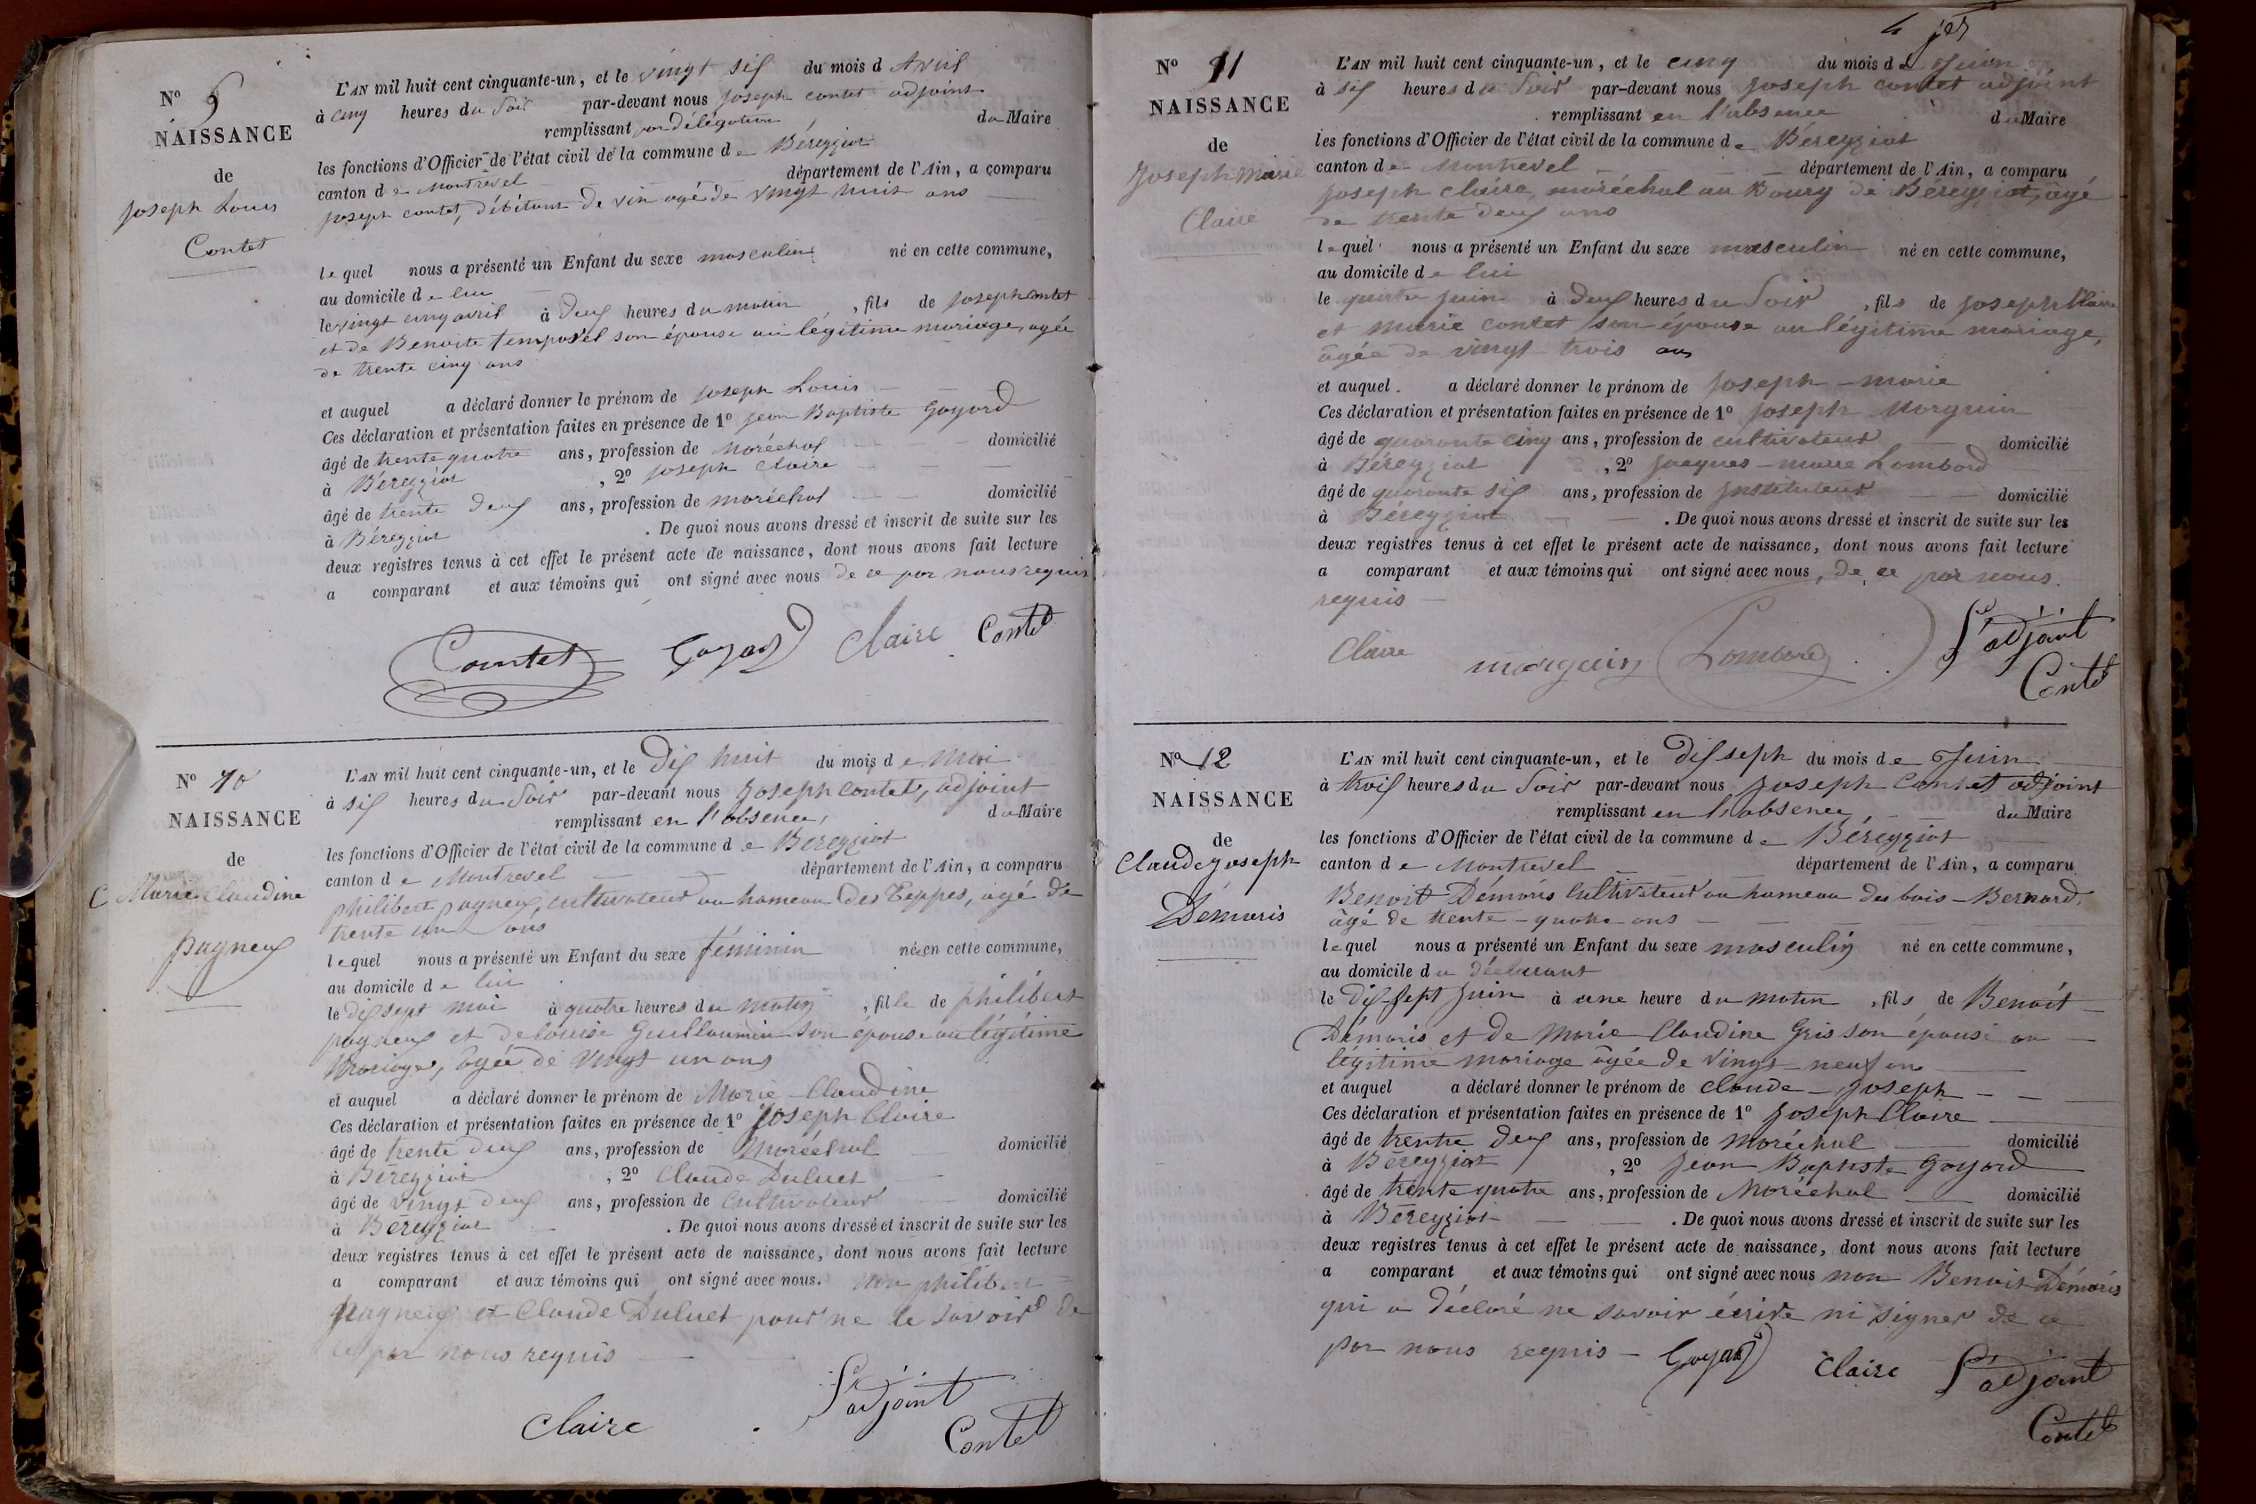 Nº 9
NAISSANCE
de
joseph Louis
Contet
L'AN mil huit cent cinquante-un, et le vingt six du mois d Avril
à cinq heures du Soir par-devant nous joseph contet adjoint
remplissant par délégation du Maire
les fonctions d'Officier de l'état civil de la commune de Béreyziat
canton de Montrevel département de l'Ain, a comparu
joseph contet, débitant de vin agé de vingt huit ans
lequel nous a présenté un Enfant du sexe masculin né en cette commune,
au domicile de lui
le vingt cinq avril à deux heures du matin, fils de joseph contet
et de Benoite temporel son épouse en légitime mariage, agée
de trente cinq ans
et auquel a déclaré donner le prénom de joseph Louis
Ces déclaration et présentation faites en présence de 1º jean Baptiste Goyard
âgé de trente quatre ans, profession de Maréchal domicilié
à Béreyziat, 2º joseph claire
âgé de trente deux ans, profession de maréchal domicilié
à Béreyziat. De quoi nous avons dressé et inscrit de suite sur les
deux registres tenus à cet effet le présent acte de naissance, dont nous avons fait lecture
a comparant et aux témoins qui ont signé avec nous de ce par nous requis
Comtet Goyard Claire Contet
Nº 10
NAISSANCE
de
Marie Claudine
pagneux
L'AN mil huit cent cinquante-un, et le Dix huit du mois de Mai
à six heures du Soir par-devant nous joseph contet, adjoint
remplissant en l'absence, du Maire
les fonctions d'Officier de l'état civil de la commune de Béreyziat
canton de Montrevel département de l'Ain, a comparu
philibert pagneux, cultivateur au hameau des Teppes, agé de
trente un ans
lequel nous a présenté un Enfant du sexe féminin née en cette commune,
au domicile de lui
le dix sept mai à quatre heures du matin, fille de philibert
pagneux et de louise Guillaumin son épouse en légitime
mariage, agée de vingt un ans
et auquel a déclaré donner le prénom de Marie Claudine
Ces déclaration et présentation faites en présence de 1º joseph Claire
âgé de trente deux ans, profession de Maréchal domicilié
à Béreyziat, 2º Claude Duluet
âgé de vingt deux ans, profession de Cultivateur domicilié
à Béreyziat. De quoi nous avons dressé et inscrit de suite sur les
deux registres tenus à cet effet le présent acte de naissance, dont nous avons fait lecture
a comparant et aux témoins qui ont signé avec nous. non philibert
pagneux et Claude Duluet pour ne le savoir de
ce par nous requis
Claire L'adjoint
Contet
Nº 11
NAISSANCE
de
joseph marie
Claire
L'AN mil huit cent cinquante-un, et le cinq du mois de Juin
à six heures du Soir par-devant nous joseph contet adjoint
remplissant en l'absence du Maire
les fonctions d'Officier de l'état civil de la commune de Béreyziat
canton de Montrevel département de l'Ain, a comparu
joseph claire, maréchal au Bourg de Béreyziat, âgé
de trente deux ans
lequel nous a présenté un Enfant du sexe masculin né en cette commune,
au domicile de lui
le quatre juin à deux heures du Soir, fils de joseph Claire
et marie contet son épouse en légitime mariage,
âgée de vingt trois ans
et auquel a déclaré donner le prénom de joseph - marie
Ces déclaration et présentation faites en présence de 1º joseph Morguin
âgé de quarante cinq ans, profession de cultivateur domicilié
à Béreyziat, 2º jacques - marie Lombard
âgé de quarante six ans, profession de instituteur domicilié
à Béreyziat. De quoi nous avons dressé et inscrit de suite sur les
deux registres tenus à cet effet le présent acte de naissance, dont nous avons fait lecture
a comparant et aux témoins qui ont signé avec nous, de ce par nous
requis
Claire morguin Lombard L'adjoint
Contet
Nº 12
NAISSANCE
de
Claude joseph
Démaris
L'AN mil huit cent cinquante-un, et le Dix seph du mois de Juin
à trois heures du Soir par-devant nous joseph Contet adjoint
remplissant en l'absence du Maire
les fonctions d'Officier de l'état civil de la commune de Béreyziat
canton de Montrevel département de l'Ain, a comparu
Benoit Démaris Cultivateur au hameau du bois - Bernard,
âgé de trente - quatre ans
lequel nous a présenté un Enfant du sexe masculin né en cette commune,
au domicile du déclarant
le Dix-sept juin à une heure du matin, fils de Benoit
Démaris et de Marie Claudine Gris son épouse en
légitime mariage agée de vingt neuf ans
et auquel a déclaré donner le prénom de claude - joseph
Ces déclaration et présentation faites en présence de 1º joseph Claire
âgé de trente deux ans, profession de Maréchal domicilié
à Béreyziat, 2º jean Baptiste Goyard
âgé de trente quatre ans, profession de Maréchal domicilié
à Béreyziat. De quoi nous avons dressé et inscrit de suite sur les
deux registres tenus à cet effet le présent acte de naissance, dont nous avons fait lecture
a comparant et aux témoins qui ont signé avec nous non Benoit Démaris
qui a déclaré ne savoir écrire ni signer de ce
par nous requis - Goyard Claire L'adjoint
Contet